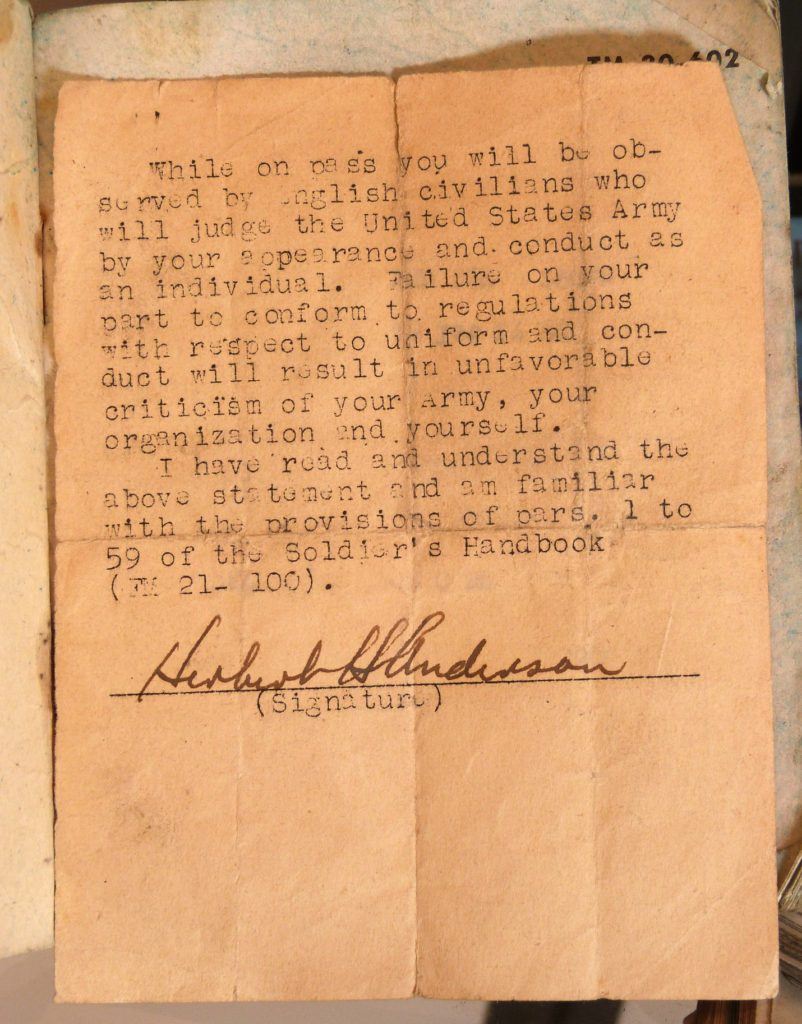 TM 30-602
While on pass you will be ob-
served by English civilians who
will judge the United States Army
by your appearance and conduct as
an individual. Failure on your
part to conform to regulations
with respect to uniform and con-
duct will result in unfavorable
criticism of your Army, your
organization and yourself.
I have read and understand the
above statement and am familiar
with the provisions of pars. 1 to
59 of the Soldier's Handbook
(FM 21- 100).
Herbert H Anderson
(Signature)